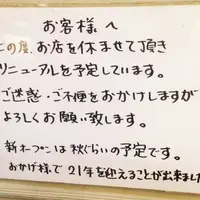 お客様へ
この度、お店を休ませて頂き
リニューアルを予定しています。
ご迷惑・ご不便をおかけしますが
よろしくお願い致します。
新オープンは秋ぐらいの予定です。
おかげ様で21年を迎えることが出来ました